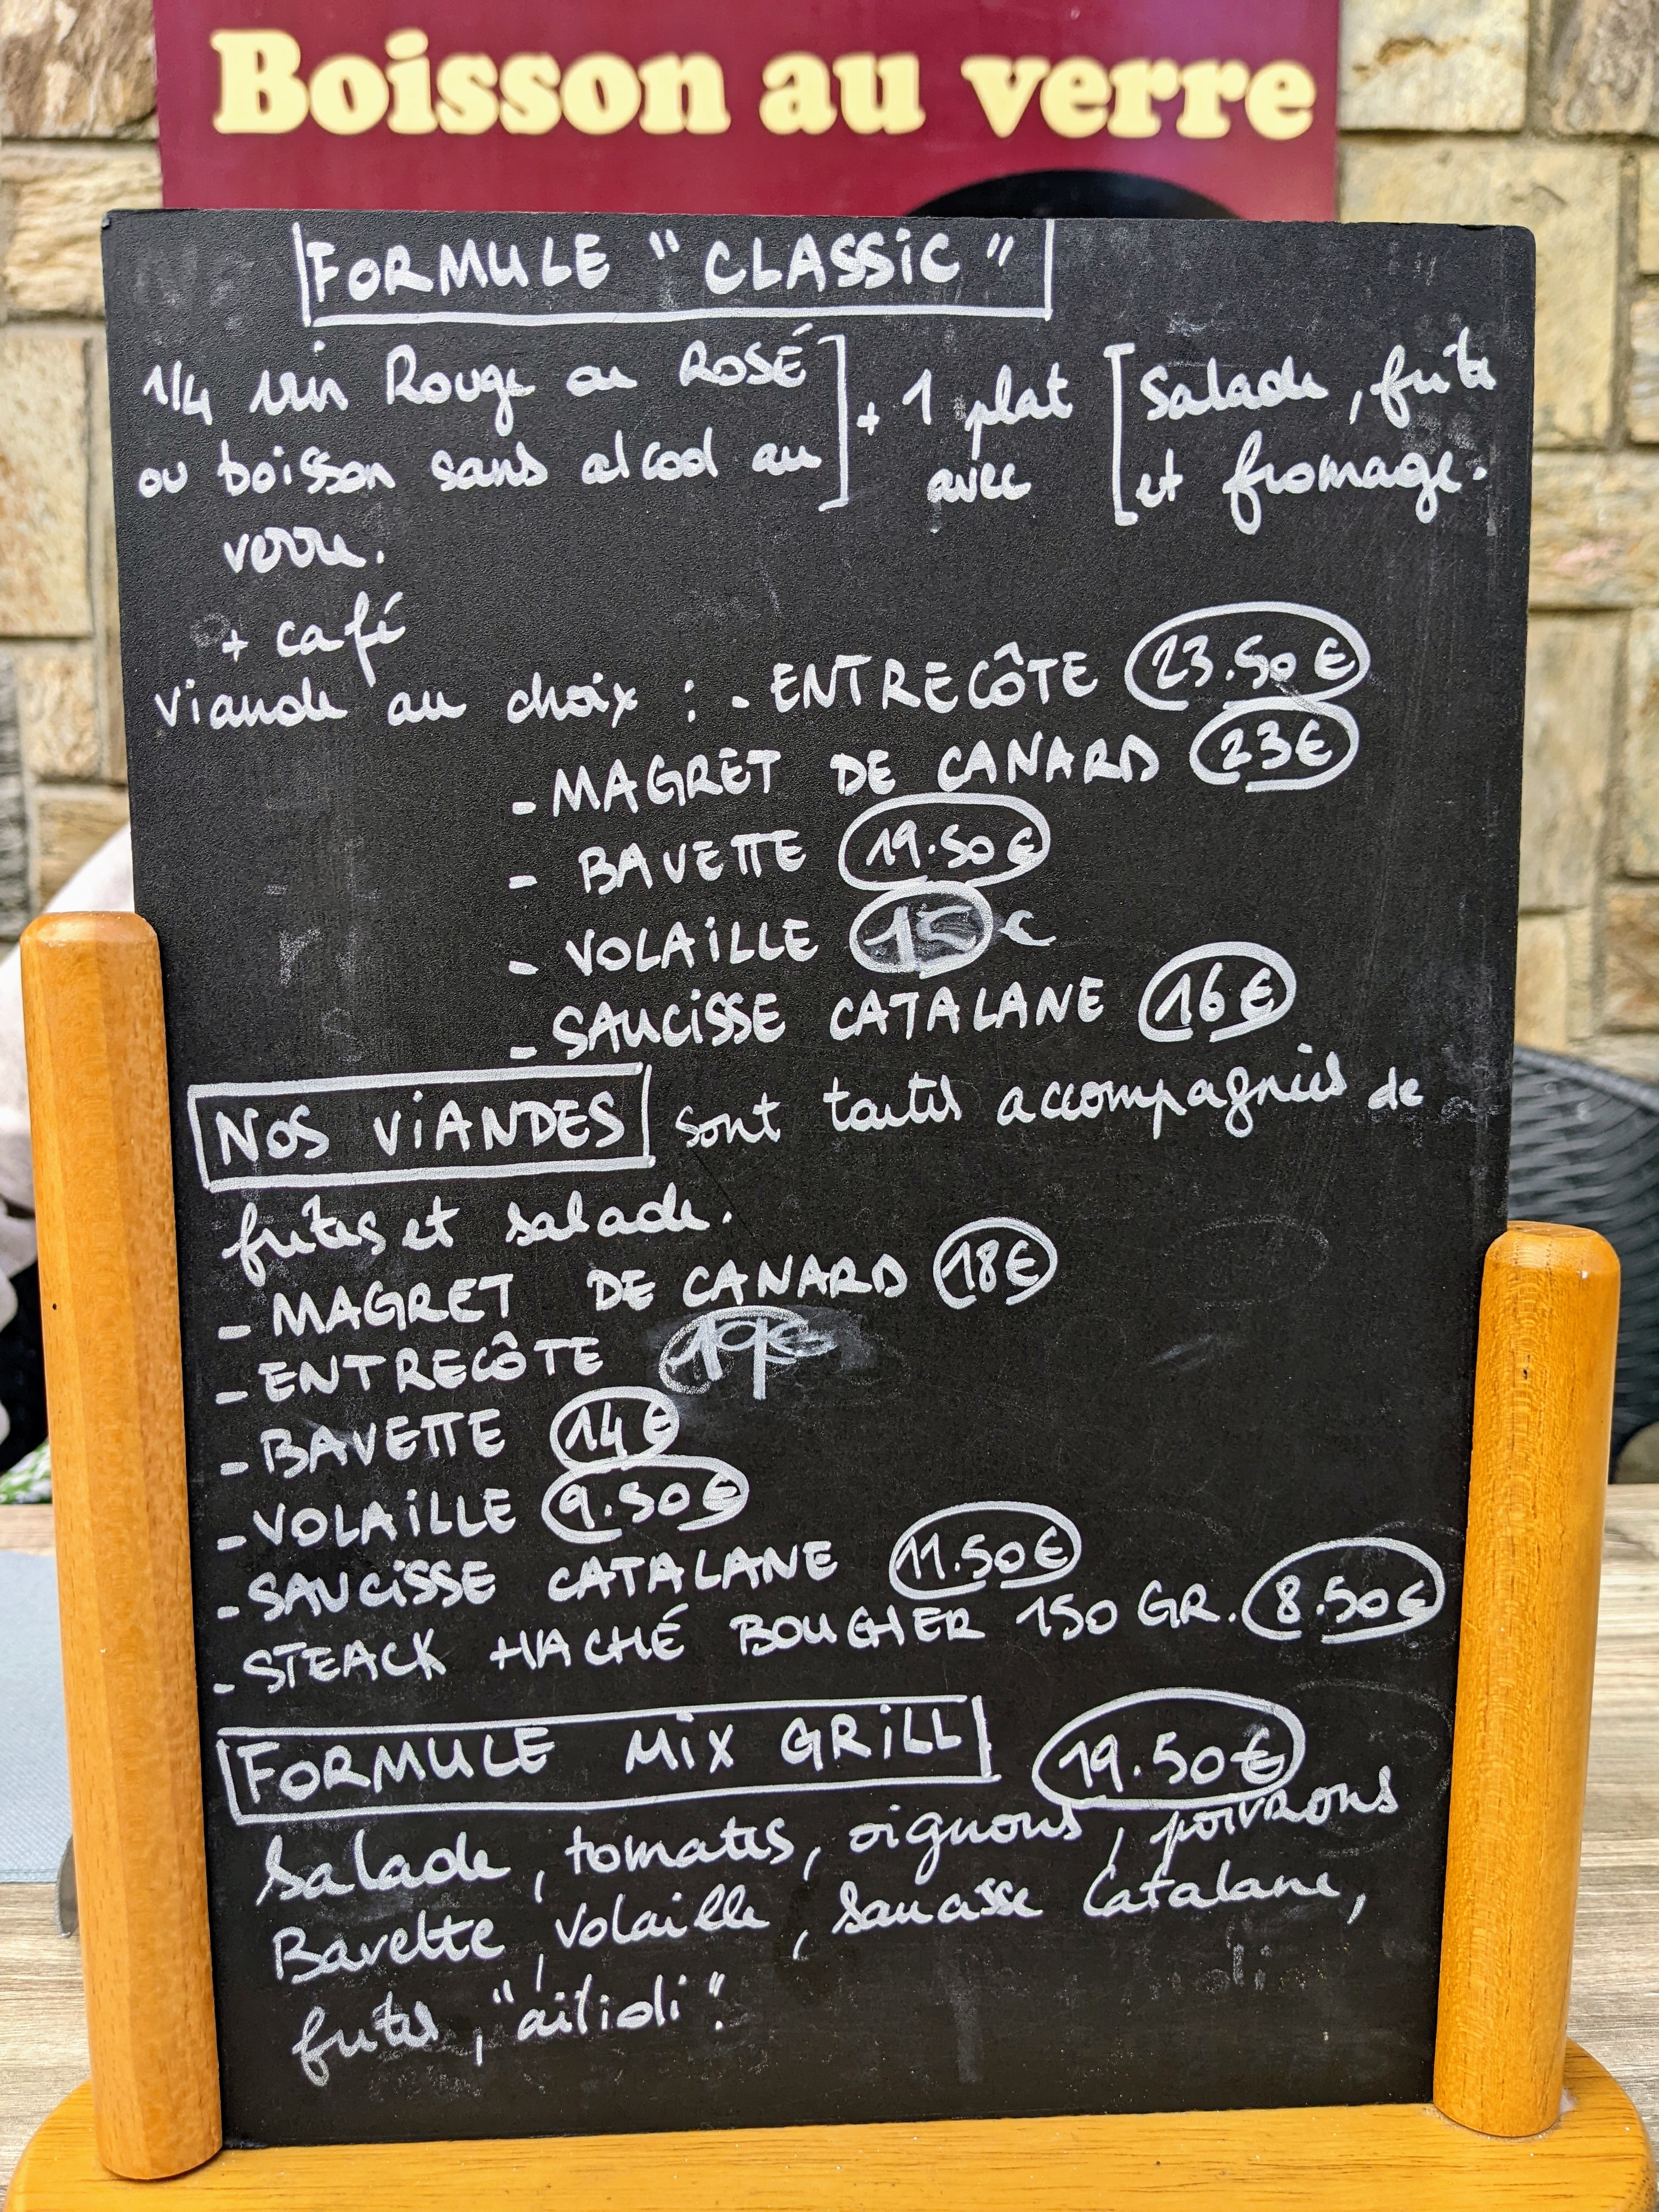 Boisson au verre
FORMULE "CLASSIC"
1/4 vin Rouge ou ROSÉ
ou boisson sans alcool au
verre.
+ 1 plat
avec
salade, frite
et fromage.
+ café
viande au choix : - ENTRECÔTE 23.50€
- MAGRET DE CANARD 23€
- BAVETTE 19.50€
- VOLAILLE 15€
- SAUCISSE CATALANE 16€
NOS VIANDES sont toutes accompagnées de
frites et salade.
- MAGRET DE CANARD 18€
- ENTRECÔTE 19€
- BAVETTE 14€
- VOLAILLE 9.50€
- SAUCISSE CATALANE 11.50€
- STEACK HACHÉ BOUCHER 150 GR. 8.50€
FORMULE MIX GRILL 19.50€
Salade, tomates, oignons, poivrons
Bavette, volaille, saucisse Catalane,
frites, "ailioli".